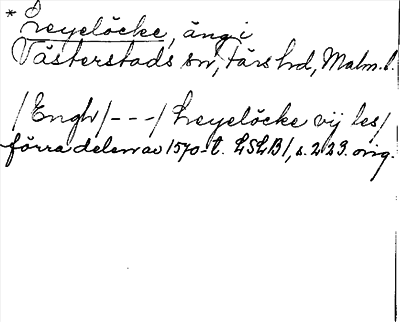 * Leyelöcke, äng i
Västerstads sn, Färs hd, Malm. l.
/Engh/---/ Leyelöcke vij les/
förra delen av 1570-t. LSLB1, s. 223. orig.